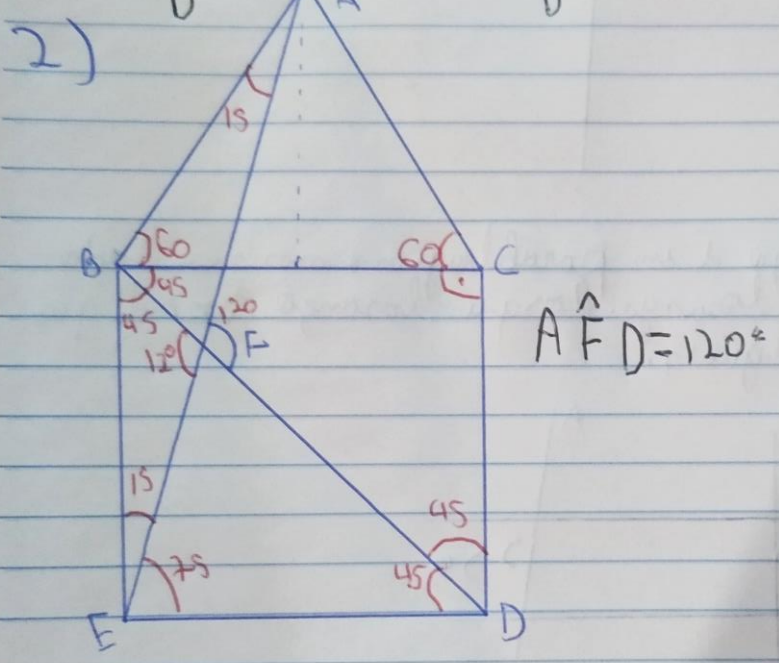 2)
A
15
B
60
60
C
45
45
120
120
F
AF̂D=120°
15
45
75
45
E
D